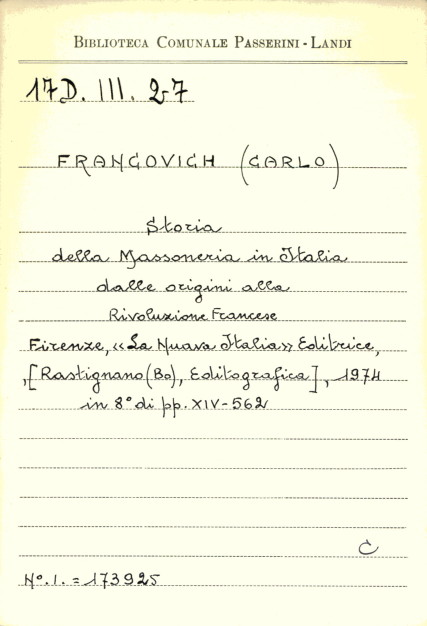 BIBLIOTECA COMUNALE PASSERINI - LANDI
17D. III. 27
FRANCOVICH (CARLO)
Storia
della Massoneria in Italia
dalle origini alla
Rivoluzione Francese
Firenze, «La Nuova Italia» Editrice,
,[Rastignano (Bo), Editografica], 1974
in 8° di pp. XIV-562
C
N°. I. = 173925